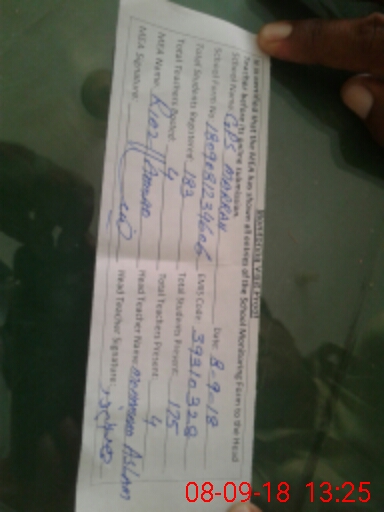 Monitoring Visit Proof
It is certified that the MEA has shown all entries of the School Monitoring Form to the Head
Teacher before its online submission.
School Name: GPS Date: 8-9-18
School Form No: 1809081234606 EMIS Code: 39310328
Total Students Registered: 183 Total Students Present: 175
Total Teachers Posted: 4 Total Teachers Present: 4
MEA Name: Riaz Head Teacher Name: ASLAM
MEA Signature: Head Teacher Signature:
08-09-18 13:25